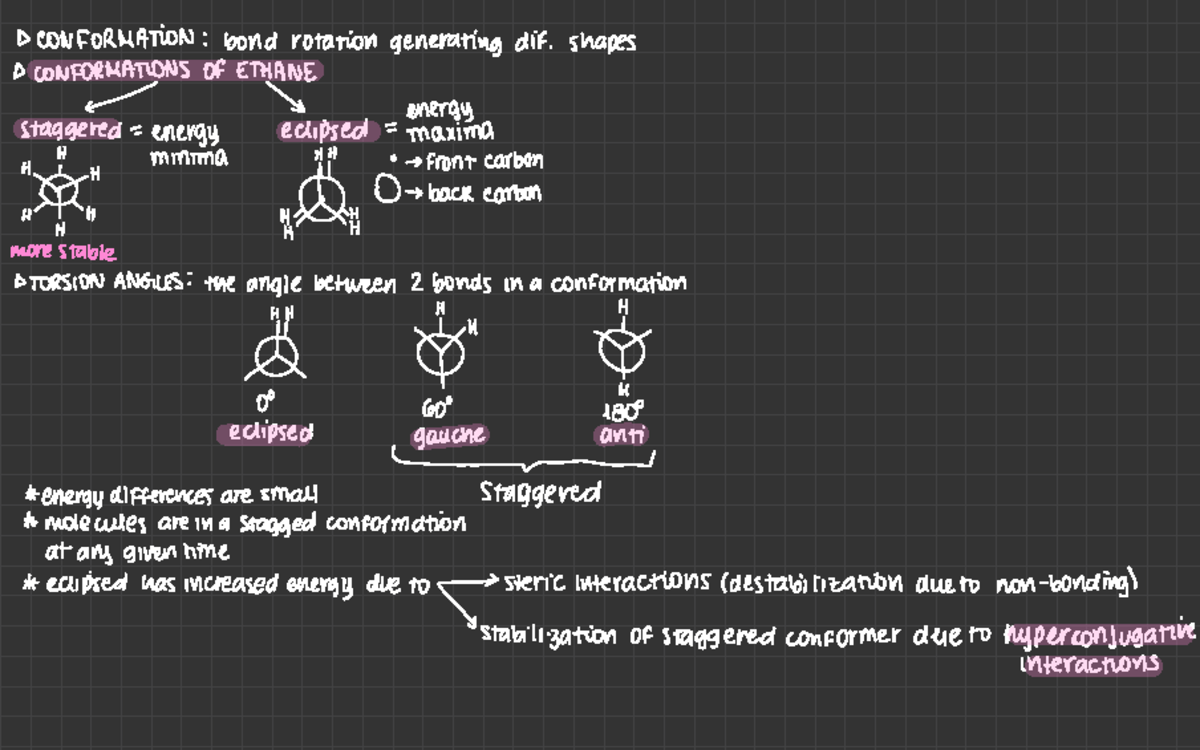 ▷ CONFORMATION: bond rotation generating dif. shapes
▷ CONFORMATIONS OF ETHANE
staggered = energy
minima
eclipsed = energy
maxima
• → front carbon
○ → back carbon
H
H H
H H
H
H H
H H
H H
more stable
▷ TORSION ANGLES: the angle between 2 bonds in a conformation
H H
0°
eclipsed
H
H
60°
gauche
H
H
180°
anti
Staggered
* energy differences are small
* molecules are in a stagged conformation
at any given time
* eclipsed has increased energy due to → steric interactions (destabilization due to non-bonding)
stabilization of staggered conformer due to hyperconjugative
interactions